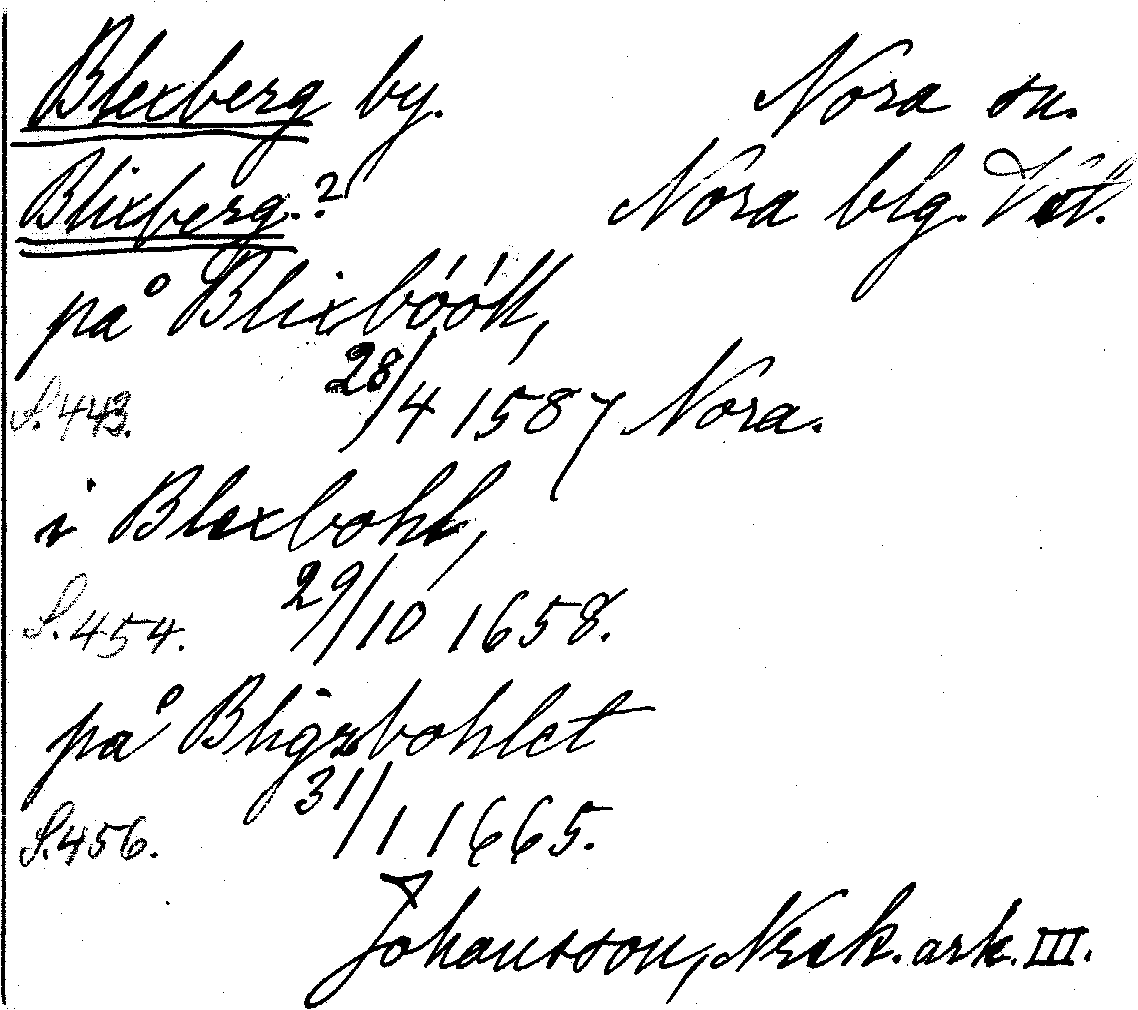 Blexberg by. Nora sn.
Blixberg.? Nora blg. Vstl.
på Blixbóóll,
S.443. 28/4 1587 Nora.
i Blexbohl,
S.454. 29/10 1658.
på Bligzbohlet
S.456. 31/1 1665.
Johansson, Nerik. ark. III.